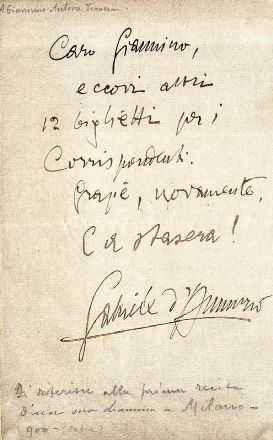 A Giannino Antona Traversi
Caro Giannino,
eccovi altri
12 biglietti per i
Corrispondenti.
Grazie, novamente.
E a stasera!
Gabriele d'Annunzio
Si riferisce alla prima recita
d'un suo dramma a